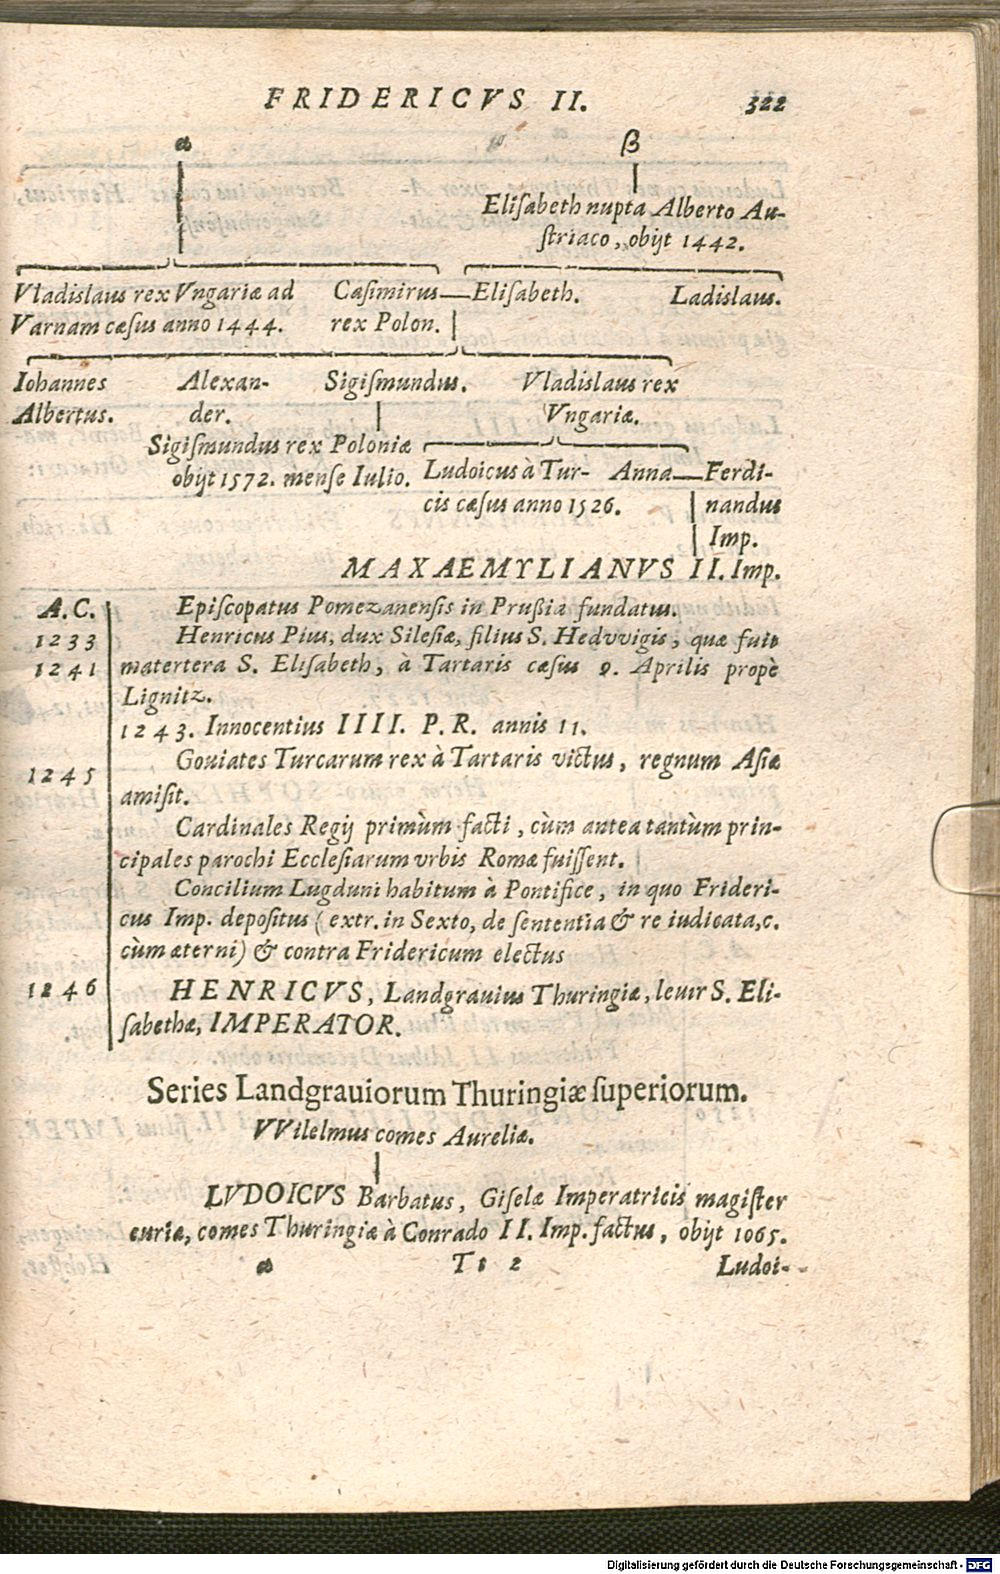 FRIDERICVS II. 322
α β
Eliſabeth nupta Alberto Au-
ſtriaco, obijt 1442.
Vladislaus rex Vngariæ ad Caſimirus—Eliſabeth. Ladislaus.
Varnam cæſus anno 1444. rex Polon.
Iohannes Alexan- Sigiſmundus. Vladislaus rex
Albertus. der. Vngariæ.
Sigiſmundus rex Poloniæ
obijt 1572. menſe Iulio. Ludoicus à Tur- Anna—Ferdi-
cis cæſus anno 1526. nandus
Imp.
MAXAEMYLIANVS II. Imp.
A.C. Epiſcopatus Pomezanenſis in Prußia fundatus.
1233 Henricus Pius, dux Sileſiæ, filius S. Hedvvigis, quæ fuit
1241 matertera S. Eliſabeth, à Tartaris cæſus 9. Aprilis propè
Lignitz.
1243. Innocentius IIII. P.R. annis 11.
1245 Gouiates Turcarum rex à Tartaris victus, regnum Aſiæ
amiſit.
Cardinales Regij primùm facti, cùm antea tantùm prin-
cipales parochi Eccleſiarum vrbis Romæ fuiſſent.
Concilium Lugduni habitum à Pontifice, in quo Frideri-
cus Imp. depoſitus (extr. in Sexto, de ſententia & re iudicata, c.
cùm æterni) & contra Fridericum electus
1246 HENRICVS, Landgrauius Thuringiæ, leuir S. Eli-
ſabethæ, IMPERATOR.
Series Landgrauiorum Thuringiæ ſuperiorum.
VVilelmus comes Aureliæ.
LVDOICVS Barbatus, Giſelæ Imperatricis magiſter
curiæ, comes Thuringiæ à Conrado II. Imp. factus, obijt 1065.
α Tt 2 Ludoi-
Digitalisierung gefördert durch die Deutsche Forschungsgemeinschaft - DFG